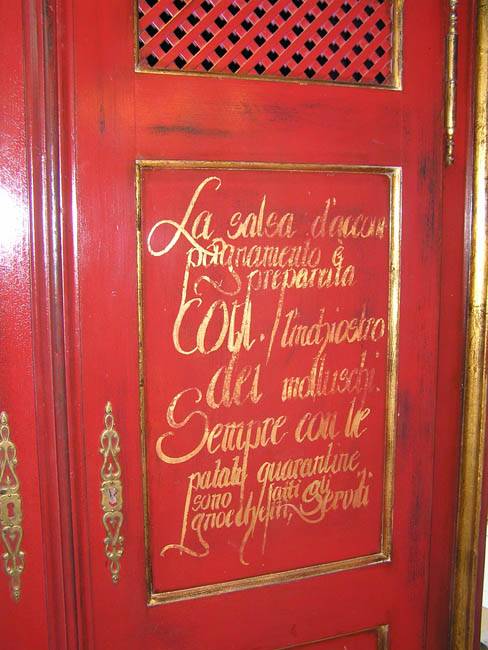 La salsa d'accom
pagnamento è
preparata
con l'inchiostro
dei molluschi.
Sempre con le
patate quarantine
sono fatti gli
gnocchetti, serviti